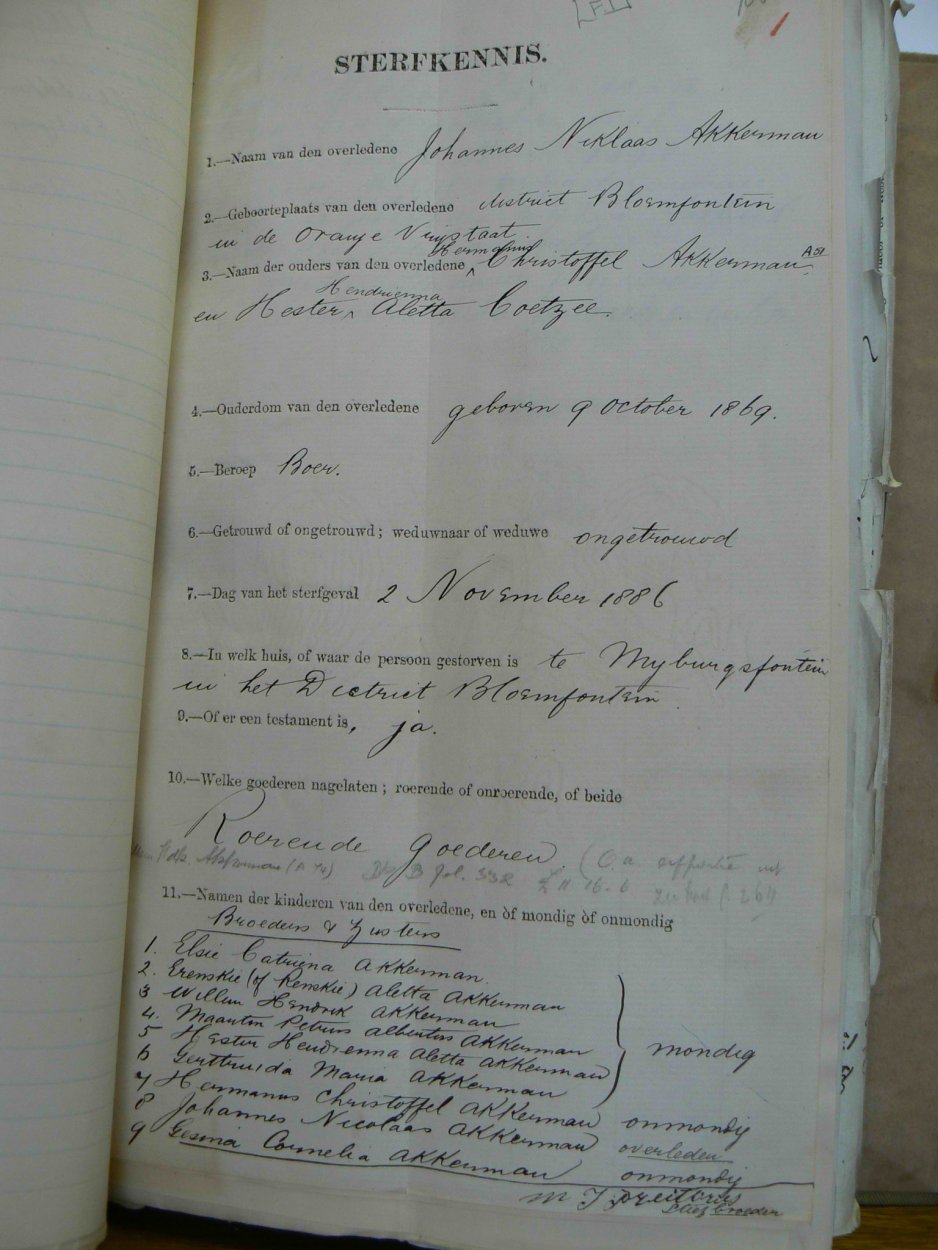 [F1]
1
STERFKENNIS.
1.—Naam van den overledene Johannes Niklaas Akkerman
2.—Geboorteplaats van den overledene district Bloemfontein
in de Oranje Vrijstaat.
3.—Naam der ouders van den overledene Hermanus Christoffel Akkerman
en Hester Hendrienna Aletta Coetzee.
4.—Ouderdom van den overledene geboren 9 October 1869.
5.—Beroep Boer.
6.—Getrouwd of ongetrouwd; weduwnaar of weduwe ongetrouwd
7.—Dag van het sterfgeval 2 November 1886
8.—In welk huis, of waar de persoon gestorven is te Myburgsfontein
in het District Bloemfontein
9.—Of er een testament is, ja.
10.—Welke goederen nagelaten; roerende of onroerende, of beide
Roerende Goederen.
Akkerman Fol. 332 £11.16.6
11.—Namen der kinderen van den overledene, en òf mondig òf onmondig
Broeders & Zusters
1. Elsie Catriena Akkerman.
2. Erenskie (of Renskie) Aletta Akkerman
3 Willem Hendrik Akkerman
4. Maartin Petrus Albertus Akkerman
5 Hester Hendrienna Aletta Akkerman mondig
6 Gerttruida Maria Akkerman
7 Hermanus Christoffel Akkerman onmondig
8 Johannes Nicolaas Akkerman overleden
9 Gesina Cornelia Akkerman onmondig
Pretorius
broeder